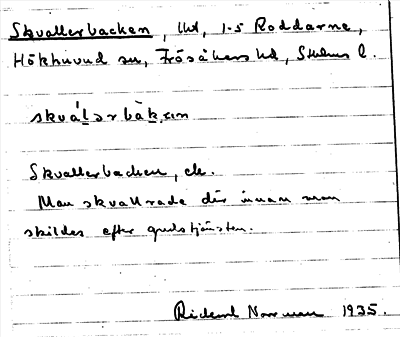 Skvallerbacken, lht, 1-5 Roddarne,
Hökhuvud sn, Frösåkers hd, Sthlms l.
skvál̀ərbàk,ən
Skvallerbacken, ck.
Man skvallrade där innan man
skildes efter gudstjänsten.
Rickard Norrman 1935.